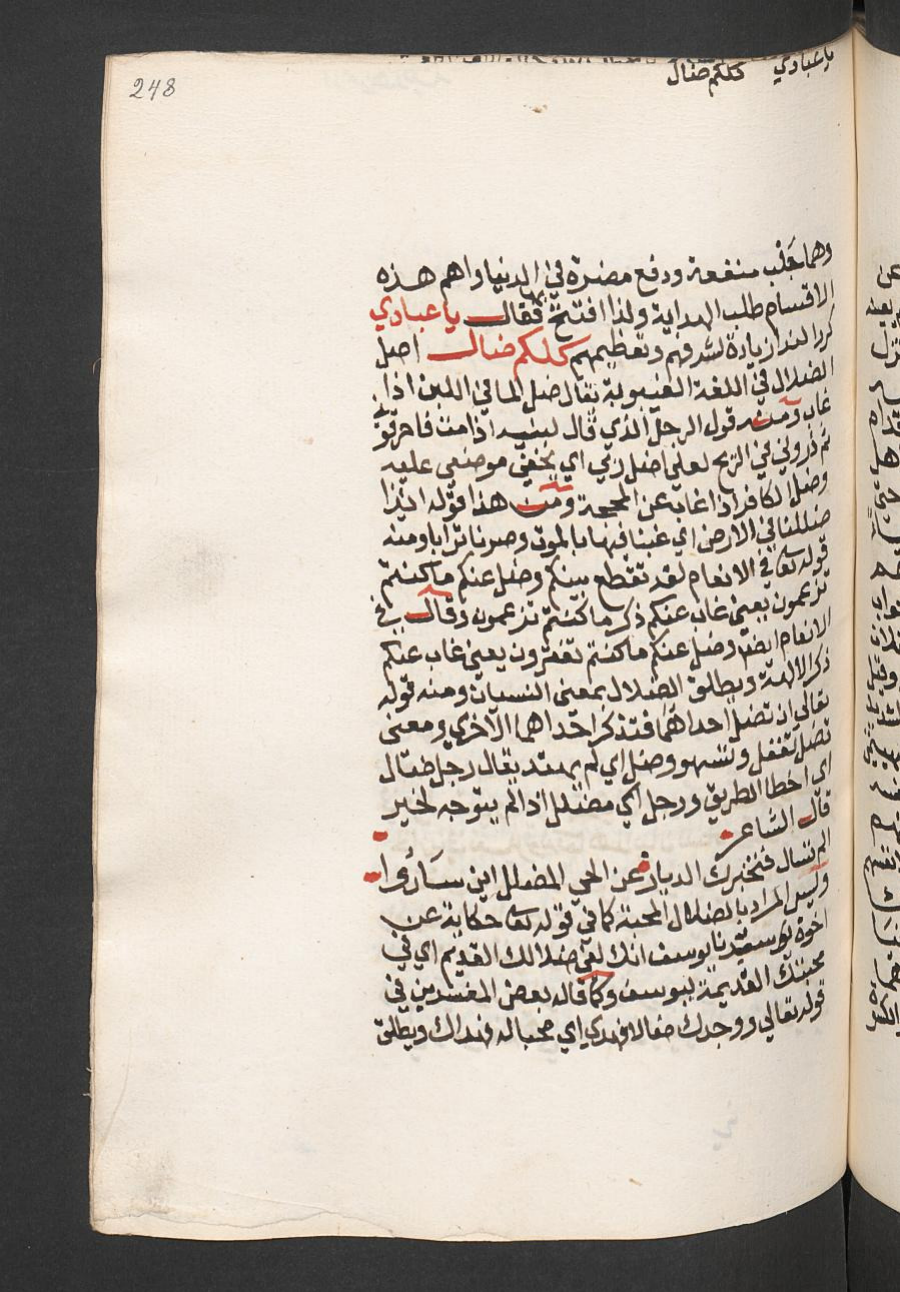 248
يا عبادي كلكم ضال
وهما جَلْب منفعة ودفع مضرة في الدنيا واهم هذه
الاقسام طلب الهداية ولذا افتتح بها فقال يا عبادي
كرر الندا زيادة لشرفهم وتعظيمهم كلكم ضال اصل
الضلال في اللغة الغيبوبة يقال ضل الما في اللبن اذا
غاب ومنه قول الرجل الذي قال لبنيه اذا مت فاحرقو
ثم ذروني في الريح لعلي اضل ربي اي يخفي موضعي عليه
وضل الكافر اذا غاب عن المحجة ومن هذا قوله ائذا
ضللنا في الارض اي غبنا فيها بالموت وصرنا ترابا ومنه
قوله تعا في الانعام لقد تقطع بينكم وضل عنكم ما كنتم
تزعمون يعني غاب عنكم ذكر ما كنتم تزعمون وقال في
الانعام ايضا وضل عنكم ما كنتم تفترون يعني غاب عنكم
ذكر الالهة ويطلق الضلال بمعنى النسيان ومنه قوله
تعالى ان تضل احداهما فتذكر احداهما الاخري ومعنى
تضل تغفل وتسهو وضل اي لم يهتد يقال رجل ضال
اي اخطا الطريق ورجل اي مضلل اذا لم يتوجه لخير
قال الشاعر
الم تسال فتخبرك الديار عن الحي المضلل اين ساروا
وليس المراد بالضلال المحبة كما في قوله تعا حكاية عن
اخوة يوسف سيدنا يوسف انك لفي ضلالك القديم اي في
محبتك القديمة ليوسف وكما قاله بعض المفسرين في
قوله تعالي ووجدك ضالا فهدي اي محبا له فهداك ويطلق